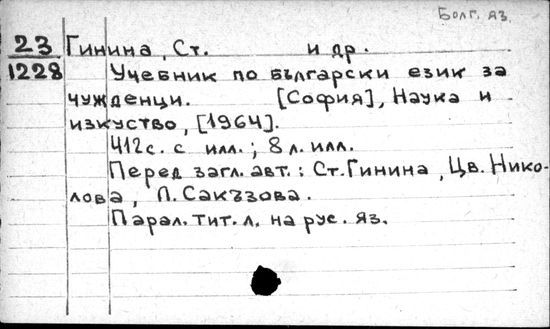 Болг. яз.
23 Гинина, Ст. и др.
1228 Учебник по български език за
чужденци. [София], Наука и
изкуство, [1964].
412с. с илл.; 8 л. илл.
Перед загл. авт.: Ст. Гинина, Цв. Нико-
лова, Л. Сакъзова.
Парал. тит. л. на рус. яз.